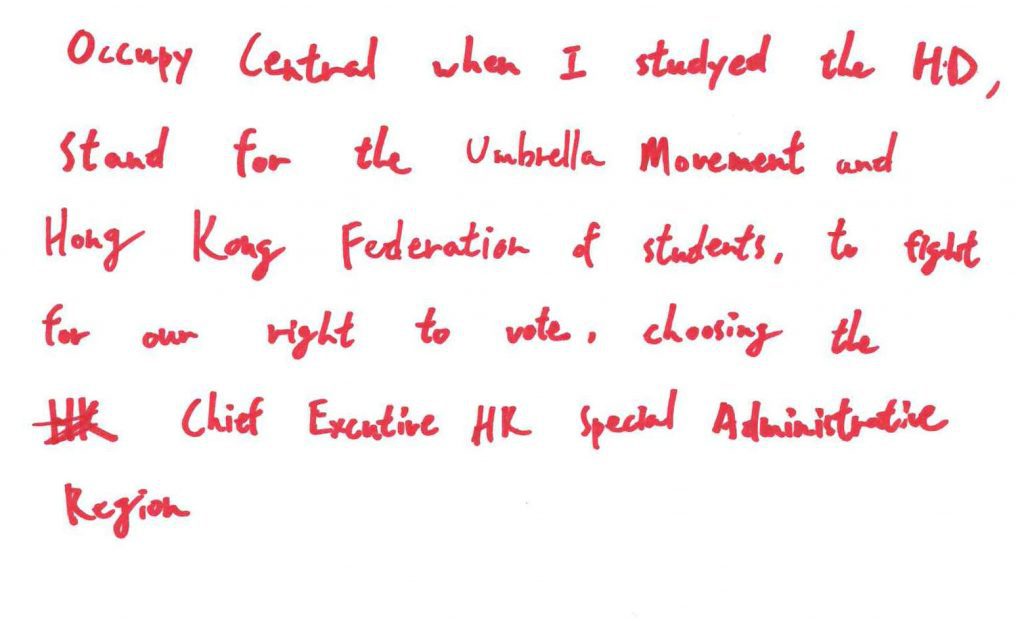 Occupy Central when I studyed the H.D,
Stand for the Umbrella Movement and
Hong Kong Federation of students, to fight
for our right to vote, choosing the
Chief Excutive HK Special Administrative
Region